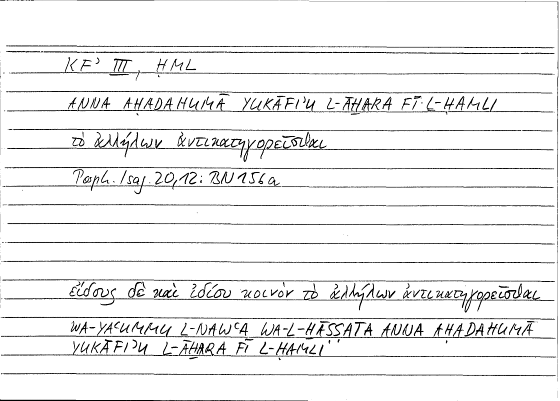 KFʾ III, ḤML
ANNA AḤADAHUMĀ YUKĀFIʾU L-ĀḪARA FĪ L-ḤAMLI
τὸ ἀλλήλων ἀντικατηγορεῖσθαι
Porph. Isag. 20,12: BN 156a
εἴδους δὲ καὶ ἰδίου κοινὸν τὸ ἀλλήλων ἀντικατηγορεῖσθαι
WA-YAʿUMMU L-NAWʿA WA-L-ḪĀṢṢATA ANNA AḤADAHUMĀ
YUKĀFIʾU L-ĀḪARA FĪ L-ḤAMLI